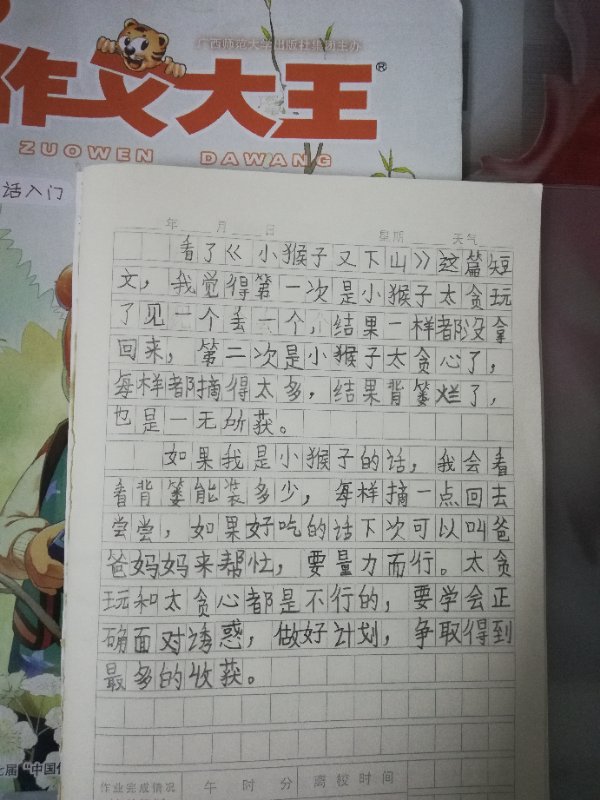 广西师范大学出版社集团主办
作文大王®
ZUOWEN DAWANG
话入门
年 月 日 星期 天气
看了《小猴子又下山》这篇短
文，我觉得第一次是小猴子太贪玩
了见一个丢一个，结果一样都没拿
回来，第二次是小猴子太贪心了，
每样都摘得太多，结果背篓烂了，
也是一无所获。
如果我是小猴子的话，我会看
看背篓能装多少，每样摘一点回去
尝尝，如果好吃的话下次可以叫爸
爸妈妈来帮忙，要量力而行。太贪
玩和太贪心都是不行的，要学会正
确面对诱惑，做好计划，争取得到
最多的收获。
七届“中国
作业完成情况 午 时 分 离校时间